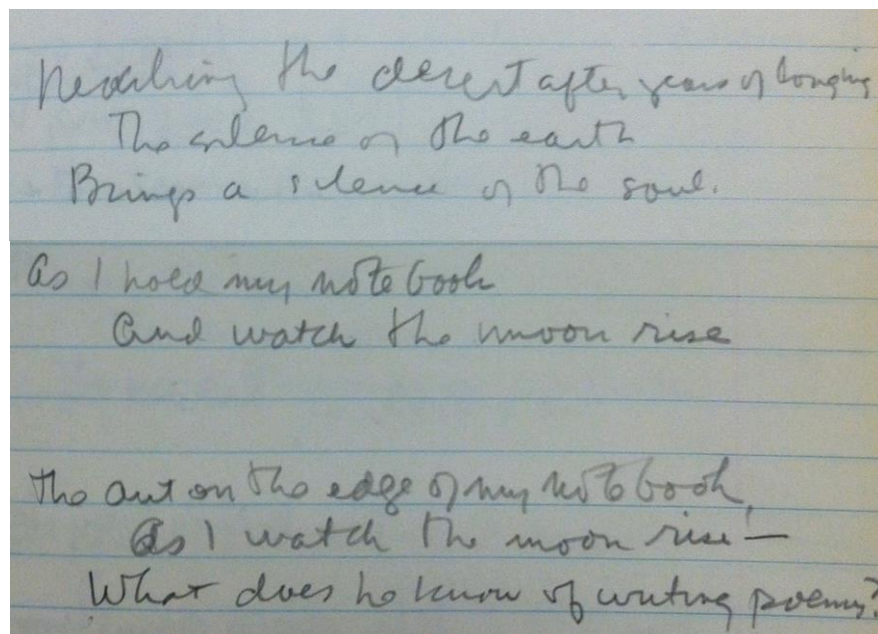 Reaching the desert after years of longing
The silence of the earth
Brings a silence of the soul.
As I hold my notebook
And watch the moon rise
The ant on the edge of my notebook,
As I watch the moon rise —
What does he know of writing poems?